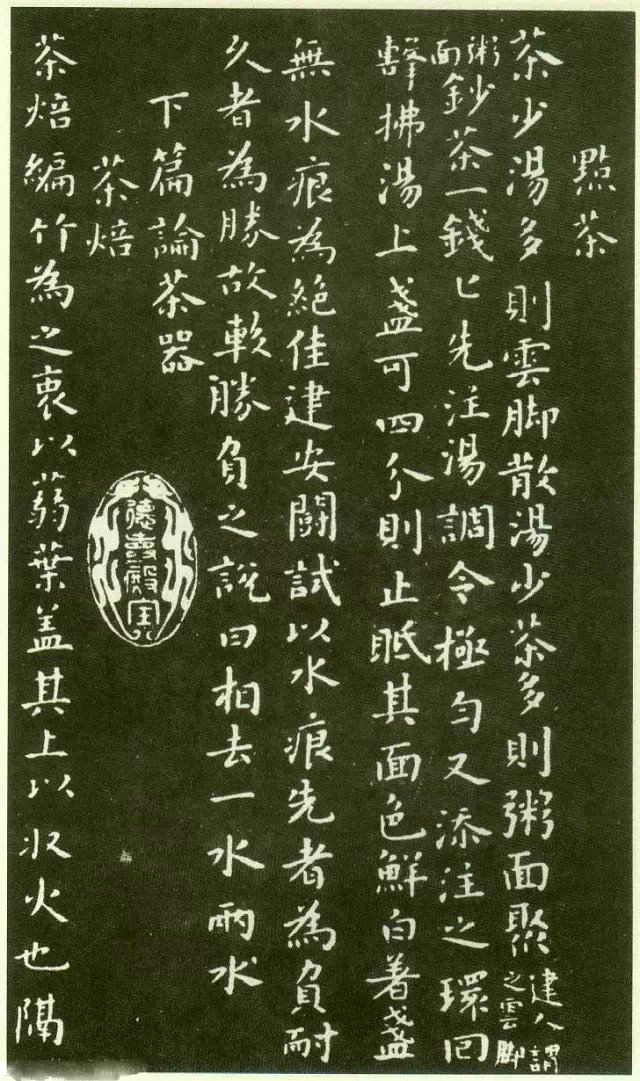 點茶
茶少湯多則雲脚散湯少茶多則粥面聚建人謂之雲脚
粥面鈔茶一錢匕先注湯調令極勻又添注之環回
擊拂湯上盞可四分則止眡其面色鮮白著盞
無水痕為絕佳建安鬪試以水痕先者為負耐
久者為勝故較勝負之說曰相去一水兩水
下篇論茶器
茶焙
德壽殿寶
茶焙編竹為之衷以蒻葉盖其上以収火也隔